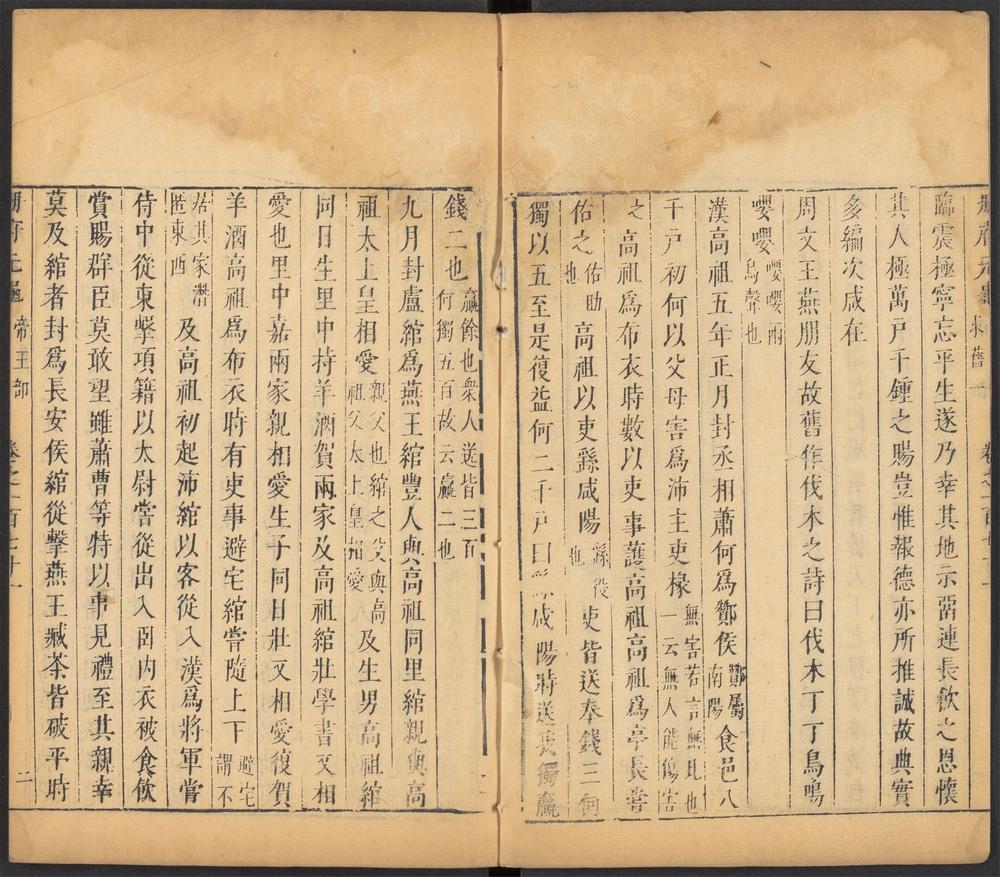 冊府元龜 求舊一 卷之一百七十二
臨震極寧忘平生遂乃幸其地示留連長飲之恩懷
其人極萬戶千鍾之賜豈惟報德亦所推誠故典實
多編次咸在
周文王燕朋友故舊作伐木之詩曰伐木丁丁鳥鳴
嚶嚶嚶嚶兩鳥聲也
漢高祖五年正月封丞相蕭何為酇侯酇屬南陽食邑八
千戶初何以父母害為沛主吏椽無害若言無比也一云無人能傷害
之高祖為布衣時數以吏事護高祖高祖為亭長嘗
佑之佑助也高祖以吏繇咸陽繇役也吏皆送奉錢三何
獨以五至是復益何二千戶曰繇咸陽時送我獨贏
錢二也贏餘也衆人送皆三百何獨五百故云贏二也
九月封盧綰為燕王綰豐人與高祖同里綰親與高
祖太上皇相愛親父也綰之父與高祖父太上皇相愛及生男高祖綰
同日生里中持羊酒賀兩家及高祖綰壯學書又相
愛也里中嘉兩家親相愛生子同日壯又相愛復賀
羊酒高祖為布衣時有吏事避宅綰嘗隨上下避宅謂不
居其家潛匿東西及高祖初起沛綰以客從入漢為將軍嘗
侍中從東擊項籍以太尉嘗從出入臥內衣被食飲
賞賜群臣莫敢望雖蕭曹等特以事見禮至其親幸
莫及綰者封為長安侯綰從擊燕王臧荼皆破平時
冊府元龜 帝王部 卷之一百七十二 二